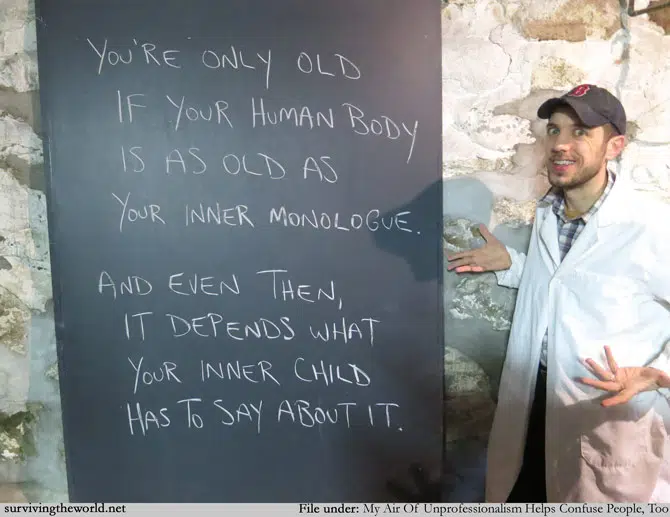 YOU'RE ONLY OLD
IF YOUR HUMAN BODY
IS AS OLD AS
YOUR INNER MONOLOGUE.
AND EVEN THEN,
IT DEPENDS WHAT
YOUR INNER CHILD
HAS TO SAY ABOUT IT.
B
survivingtheworld.net
File under: My Air Of Unprofessionalism Helps Confuse People, Too